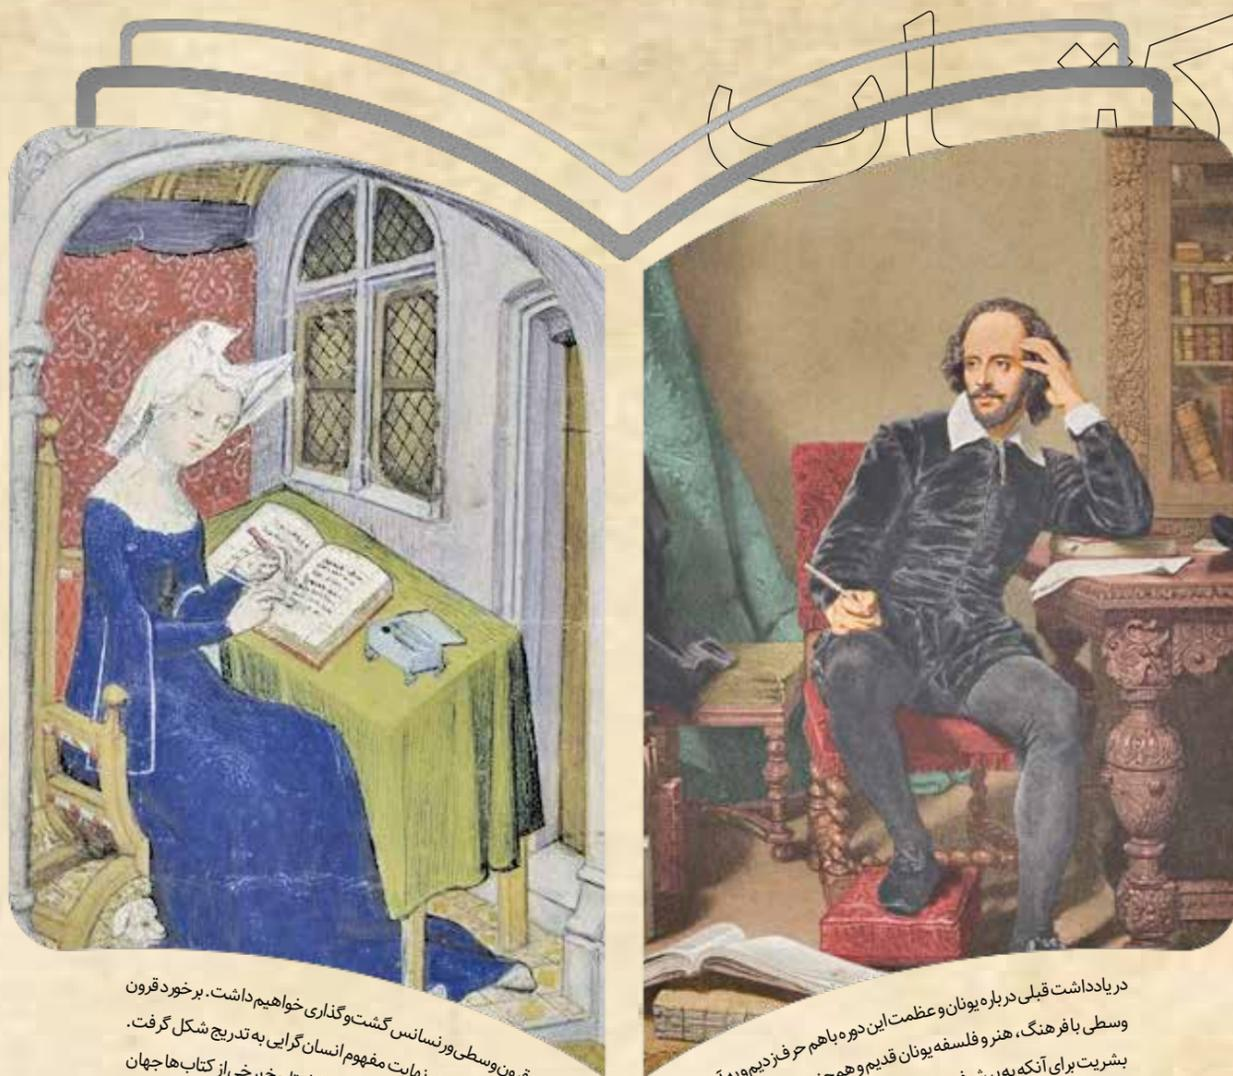 کتاب
در یادداشت قبلی درباره یونان و عظمت این دوره باهم حرف زدیم و به
وسطی با فرهنگ، هنر و فلسفه یونان قدیم و همچنین
بشریت برای آنکه به
قرون وسطی و رنسانس گشت‌وگذاری خواهیم داشت. برخورد قرون
نهایت مفهوم انسان‌گرایی به تدریج شکل گرفت.
برخی از کتاب‌ها جهان